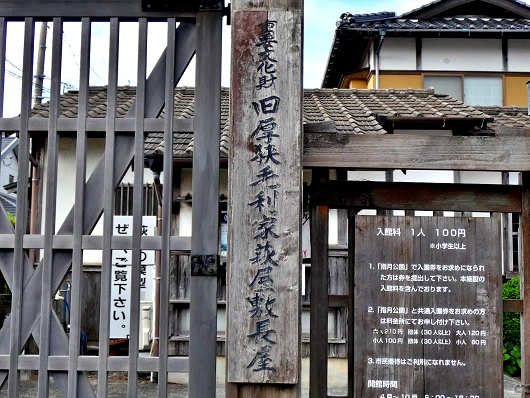 重要文化財
旧厚狭毛利家萩屋敷長屋
ぜひご覧下さい。
萩の模型
入館料 1人 100円
※小学生以上
1.「指月公園」で入園券をお求めになられ
た方は券を提出して下さい。本施設の
入館料を含んでおります。
2.「指月公園」と共通入園券をお求めの方
は料金所にてお申し付け下さい。
大人210円 団体(30人以上) 大人120円
小人100円 団体(30人以上) 小人 80円
3.市民優待はご利用になれません。
開館時間